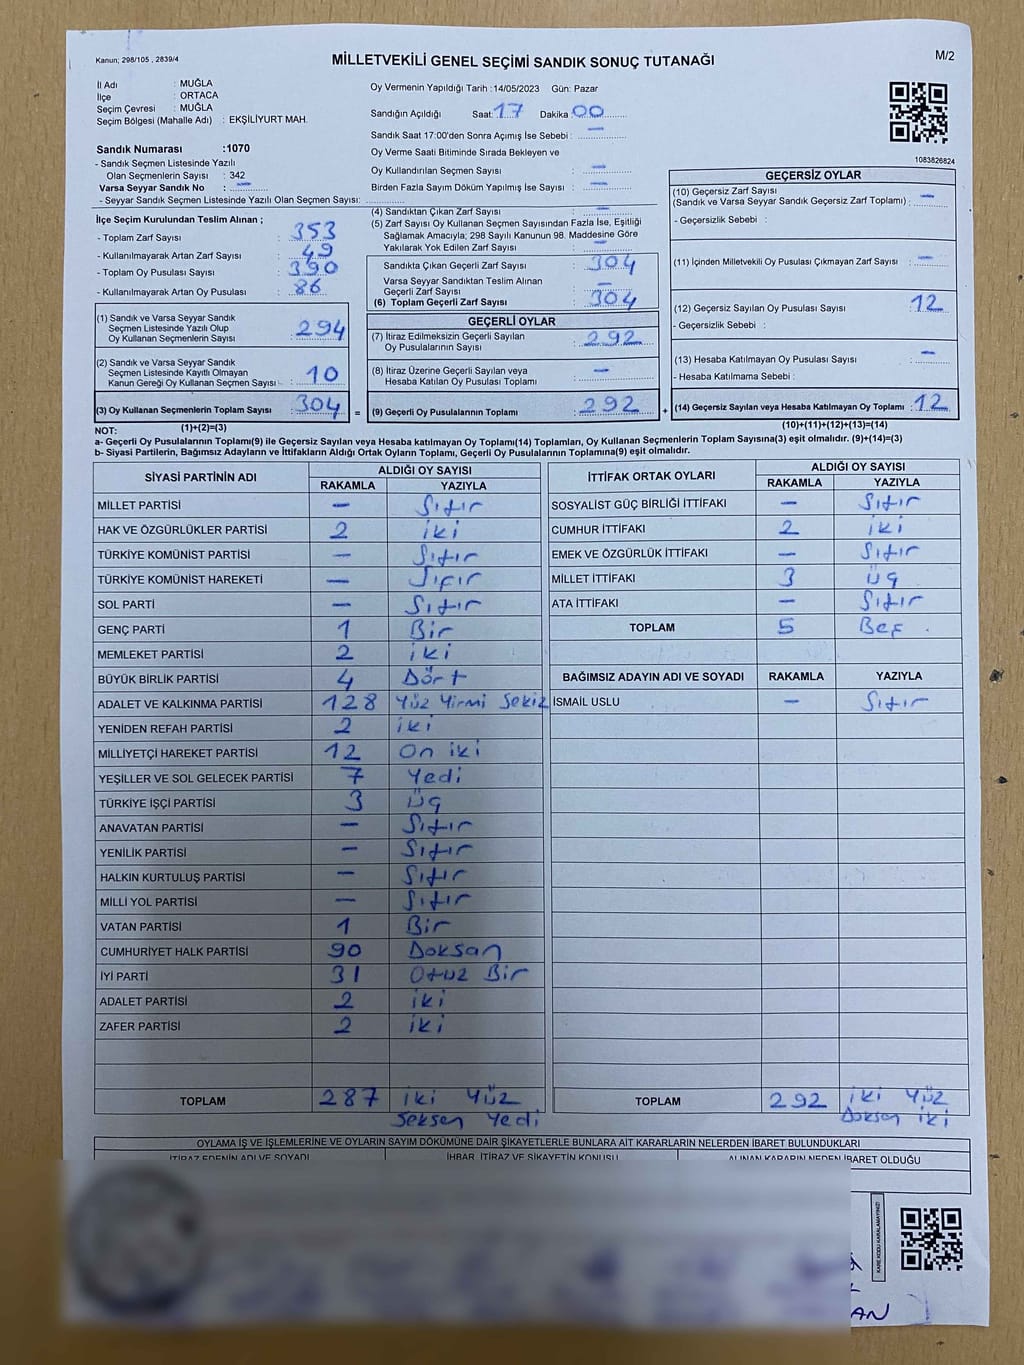 Kanun; 298/105 , 2839/4
MİLLETVEKİLİ GENEL SEÇİMİ SANDIK SONUÇ TUTANAĞI
M/2
İl Adı : MUĞLA
İlçe : ORTACA
Seçim Çevresi : MUĞLA
Seçim Bölgesi (Mahalle Adı) : EKŞİLİYURT MAH.
Sandık Numarası :1070
- Sandık Seçmen Listesinde Yazılı
Olan Seçmenlerin Sayısı : 342
Varsa Seyyar Sandık No : —
- Seyyar Sandık Seçmen Listesinde Yazılı Olan Seçmen Sayısı:
Oy Vermenin Yapıldığı Tarih :14/05/2023 Gün: Pazar
Sandığın Açıldığı Saat: 17 Dakika: 00
Sandık Saat 17:00'den Sonra Açımış İse Sebebi : —
Oy Verme Saati Bitiminde Sırada Bekleyen ve
Oy Kullandırılan Seçmen Sayısı : —
Birden Fazla Sayım Döküm Yapılmış İse Sayısı : —
1083826824
İlçe Seçim Kurulundan Teslim Alınan ;
- Toplam Zarf Sayısı : 353
- Kullanılmayarak Artan Zarf Sayısı : 49
- Toplam Oy Pusulası Sayısı : 390
- Kullanılmayarak Artan Oy Pusulası : 86
(1) Sandık ve Varsa Seyyar Sandık
Seçmen Listesinde Yazılı Olup
Oy Kullanan Seçmenlerin Sayısı : 294
(2) Sandık ve Varsa Seyyar Sandık
Seçmen Listesinde Kayıtlı Olmayan
Kanun Gereği Oy Kullanan Seçmen Sayısı : 10
(3) Oy Kullanan Seçmenlerin Toplam Sayısı : 304 =
(4) Sandıktan Çıkan Zarf Sayısı : —
(5) Zarf Sayısı Oy Kullanan Seçmen Sayısından Fazla İse, Eşitliği
Sağlamak Amacıyla; 298 Sayılı Kanunun 98. Maddesine Göre
Yakılarak Yok Edilen Zarf Sayısı : —
Sandıkta Çıkan Geçerli Zarf Sayısı : 304
Varsa Seyyar Sandıktan Teslim Alınan
Geçerli Zarf Sayısı : —
(6) Toplam Geçerli Zarf Sayısı : 304
GEÇERLİ OYLAR
(7) İtiraz Edilmeksizin Geçerli Sayılan
Oy Pusulalarının Sayısı : 292
(8) İtiraz Üzerine Geçerli Sayılan veya
Hesaba Katılan Oy Pusulası Toplamı : —
(9) Geçerli Oy Pusulalarının Toplamı : 292 +
GEÇERSİZ OYLAR
(10) Geçersiz Zarf Sayısı
(Sandık ve Varsa Seyyar Sandık Geçersiz Zarf Toplamı) : —
- Geçersizlik Sebebi :
(11) İçinden Milletvekili Oy Pusulası Çıkmayan Zarf Sayısı : —
(12) Geçersiz Sayılan Oy Pusulası Sayısı : 12
- Geçersizlik Sebebi :
(13) Hesaba Katılmayan Oy Pusulası Sayısı : —
- Hesaba Katılmama Sebebi :
(14) Geçersiz Sayılan veya Hesaba Katılmayan Oy Toplamı : 12
NOT: (1)+(2)=(3) (10)+(11)+(12)+(13)=(14)
a- Geçerli Oy Pusulalarının Toplamı(9) ile Geçersiz Sayılan veya Hesaba katılmayan Oy Toplamı(14) Toplamları, Oy Kullanan Seçmenlerin Toplam Sayısına(3) eşit olmalıdır. (9)+(14)=(3)
b- Siyasi Partilerin, Bağımsız Adayların ve İttifakların Aldığı Ortak Oyların Toplamı, Geçerli Oy Pusulalarının Toplamına(9) eşit olmalıdır.
SİYASİ PARTİNİN ADI ALDIĞI OY SAYISI
RAKAMLA YAZIYLA
MİLLET PARTİSİ — Sıfır
HAK VE ÖZGÜRLÜKLER PARTİSİ 2 iki
TÜRKİYE KOMÜNİST PARTİSİ — Sıfır
TÜRKİYE KOMÜNİST HAREKETİ — Sıfır
SOL PARTİ — Sıfır
GENÇ PARTİ 1 Bir
MEMLEKET PARTİSİ 2 iki
BÜYÜK BİRLİK PARTİSİ 4 Dört
ADALET VE KALKINMA PARTİSİ 128 Yüz Yirmi Sekiz
YENİDEN REFAH PARTİSİ 2 iki
MİLLİYETÇİ HAREKET PARTİSİ 12 On iki
YEŞİLLER VE SOL GELECEK PARTİSİ 7 Yedi
TÜRKİYE İŞÇİ PARTİSİ 3 üç
ANAVATAN PARTİSİ — Sıfır
YENİLİK PARTİSİ — Sıfır
HALKIN KURTULUŞ PARTİSİ — Sıfır
MİLLİ YOL PARTİSİ — Sıfır
VATAN PARTİSİ 1 Bir
CUMHURİYET HALK PARTİSİ 90 Doksan
İYİ PARTİ 31 Otuz Bir
ADALET PARTİSİ 2 iki
ZAFER PARTİSİ 2 iki
TOPLAM 287 iki Yüz
Seksen Yedi
İTTİFAK ORTAK OYLARI ALDIĞI OY SAYISI
RAKAMLA YAZIYLA
SOSYALİST GÜÇ BİRLİĞİ İTTİFAKI — Sıfır
CUMHUR İTTİFAKI 2 iki
EMEK VE ÖZGÜRLÜK İTTİFAKI — Sıfır
MİLLET İTTİFAKI 3 üç
ATA İTTİFAKI — Sıfır
TOPLAM 5 Beş .
BAĞIMSIZ ADAYIN ADI VE SOYADI RAKAMLA YAZIYLA
İSMAİL USLU — Sıfır
TOPLAM 292 iki Yüz
Doksan iki
OYLAMA İŞ VE İŞLEMLERİNE VE OYLARIN SAYIM DÖKÜMÜNE DAİR ŞİKAYETLERLE BUNLARA AİT KARARLARIN NELERDEN İBARET BULUNDUKLARI
İTİRAZ EDENİN ADI VE SOYADI İHBAR, İTİRAZ VE ŞİKAYETİN KONUSU ALINAN KARARIN NEDEN İBARET OLDUĞU
KARE KODU KARALAMAYINIZ!